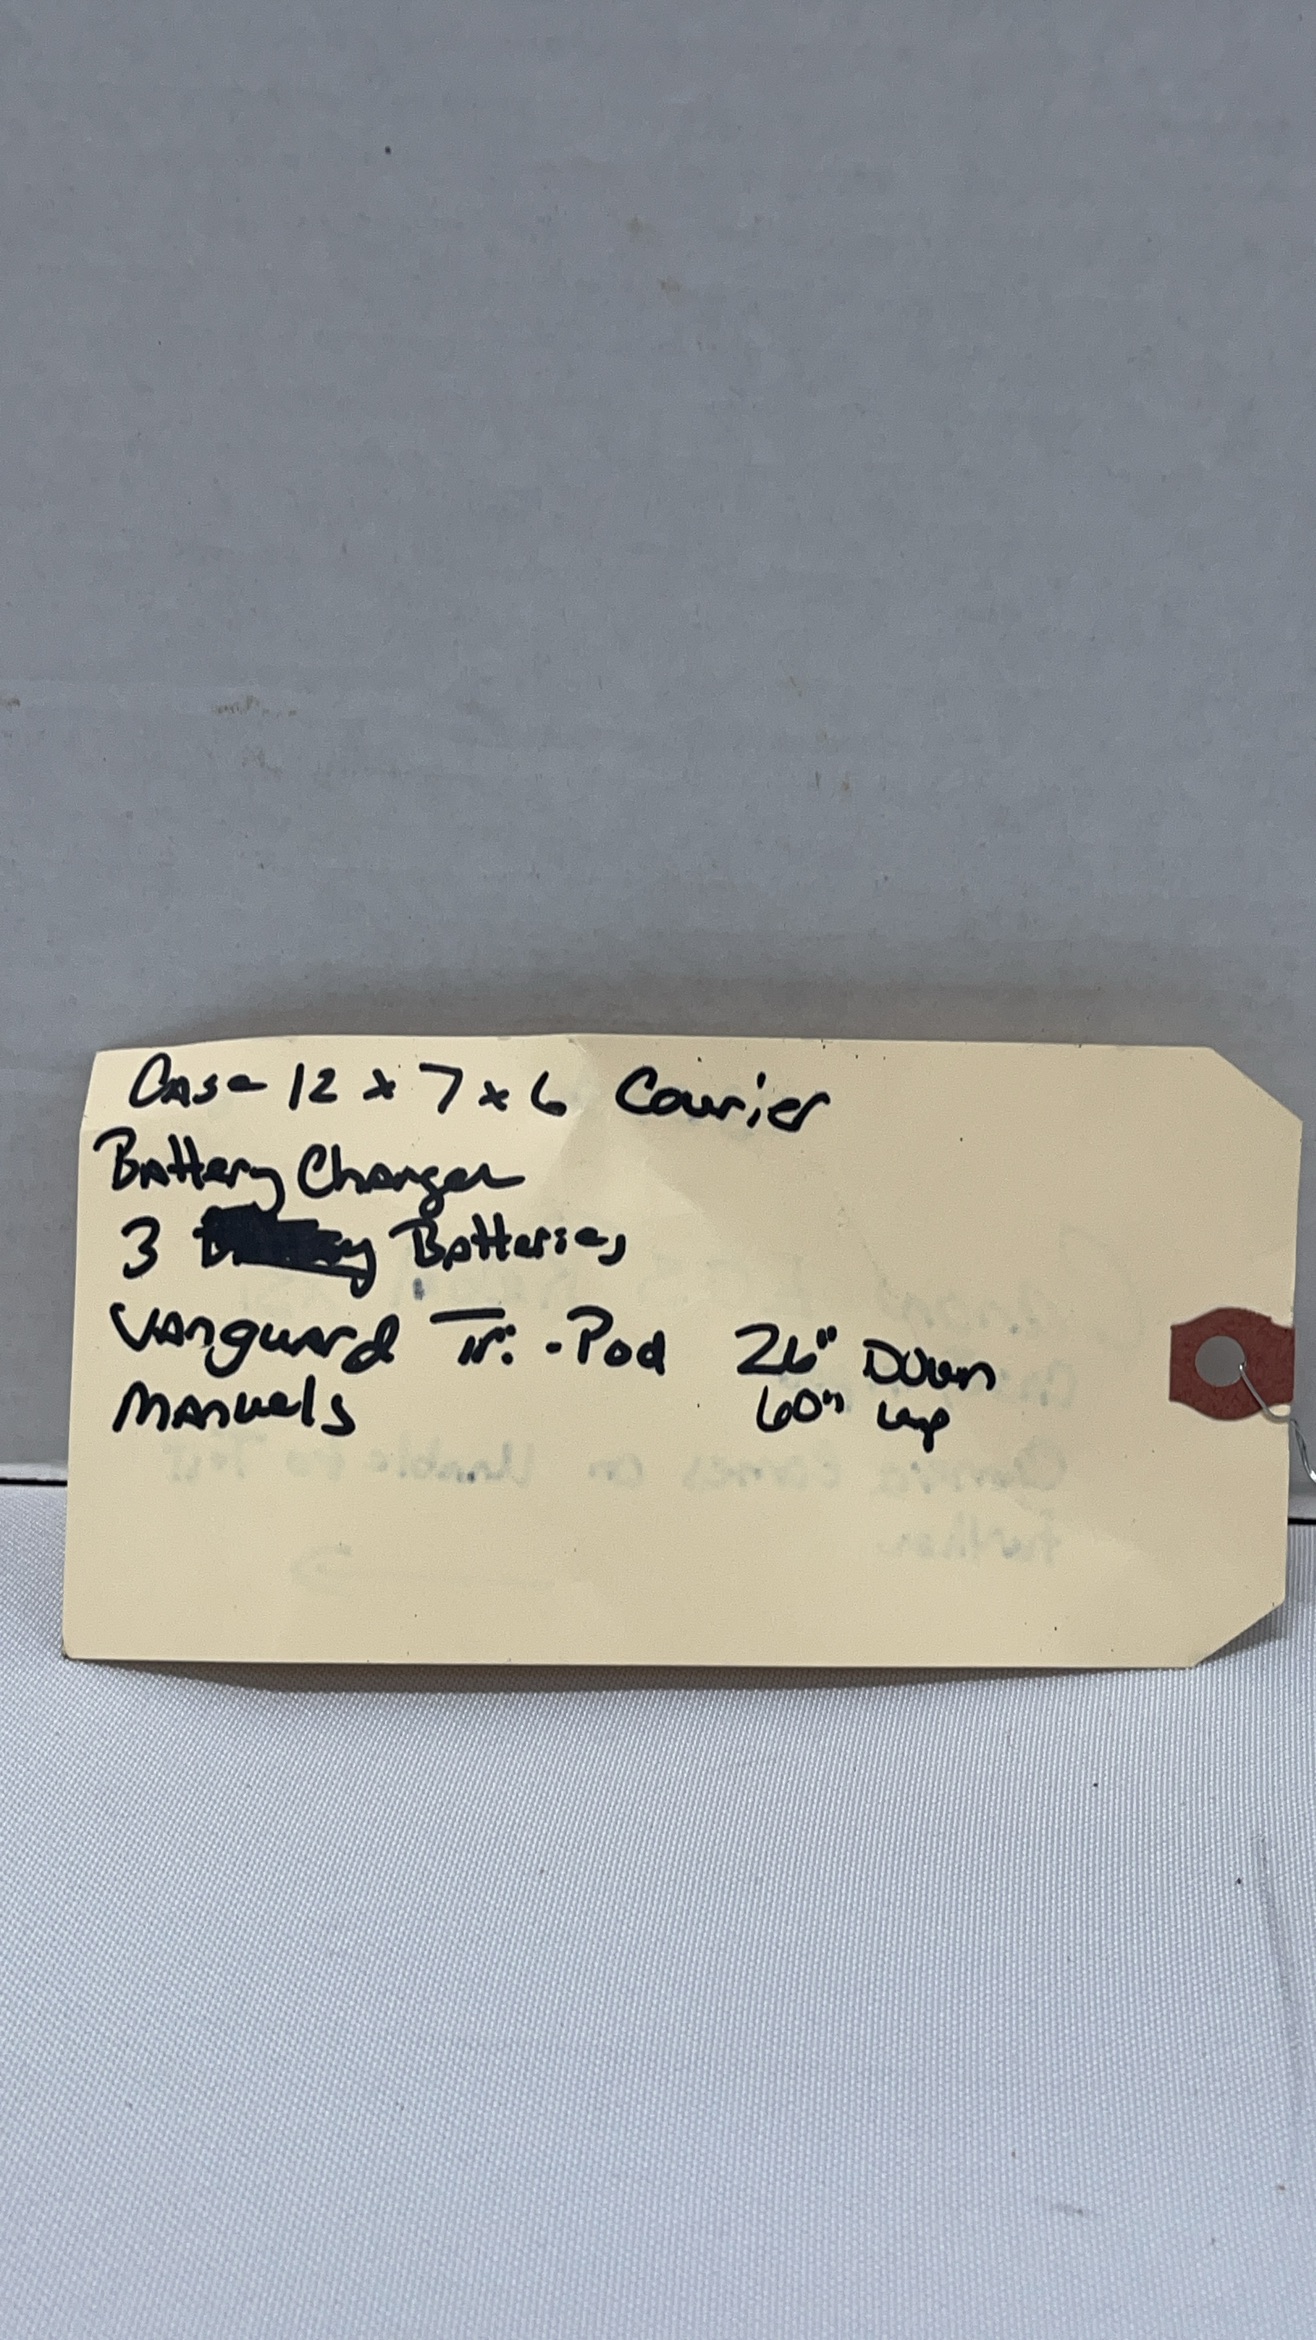 Case 12 x 7 x 6 Courier
Battery Charger
3 Batteries
Vanguard Tri-Pod 26" Down
60" up
Manuels